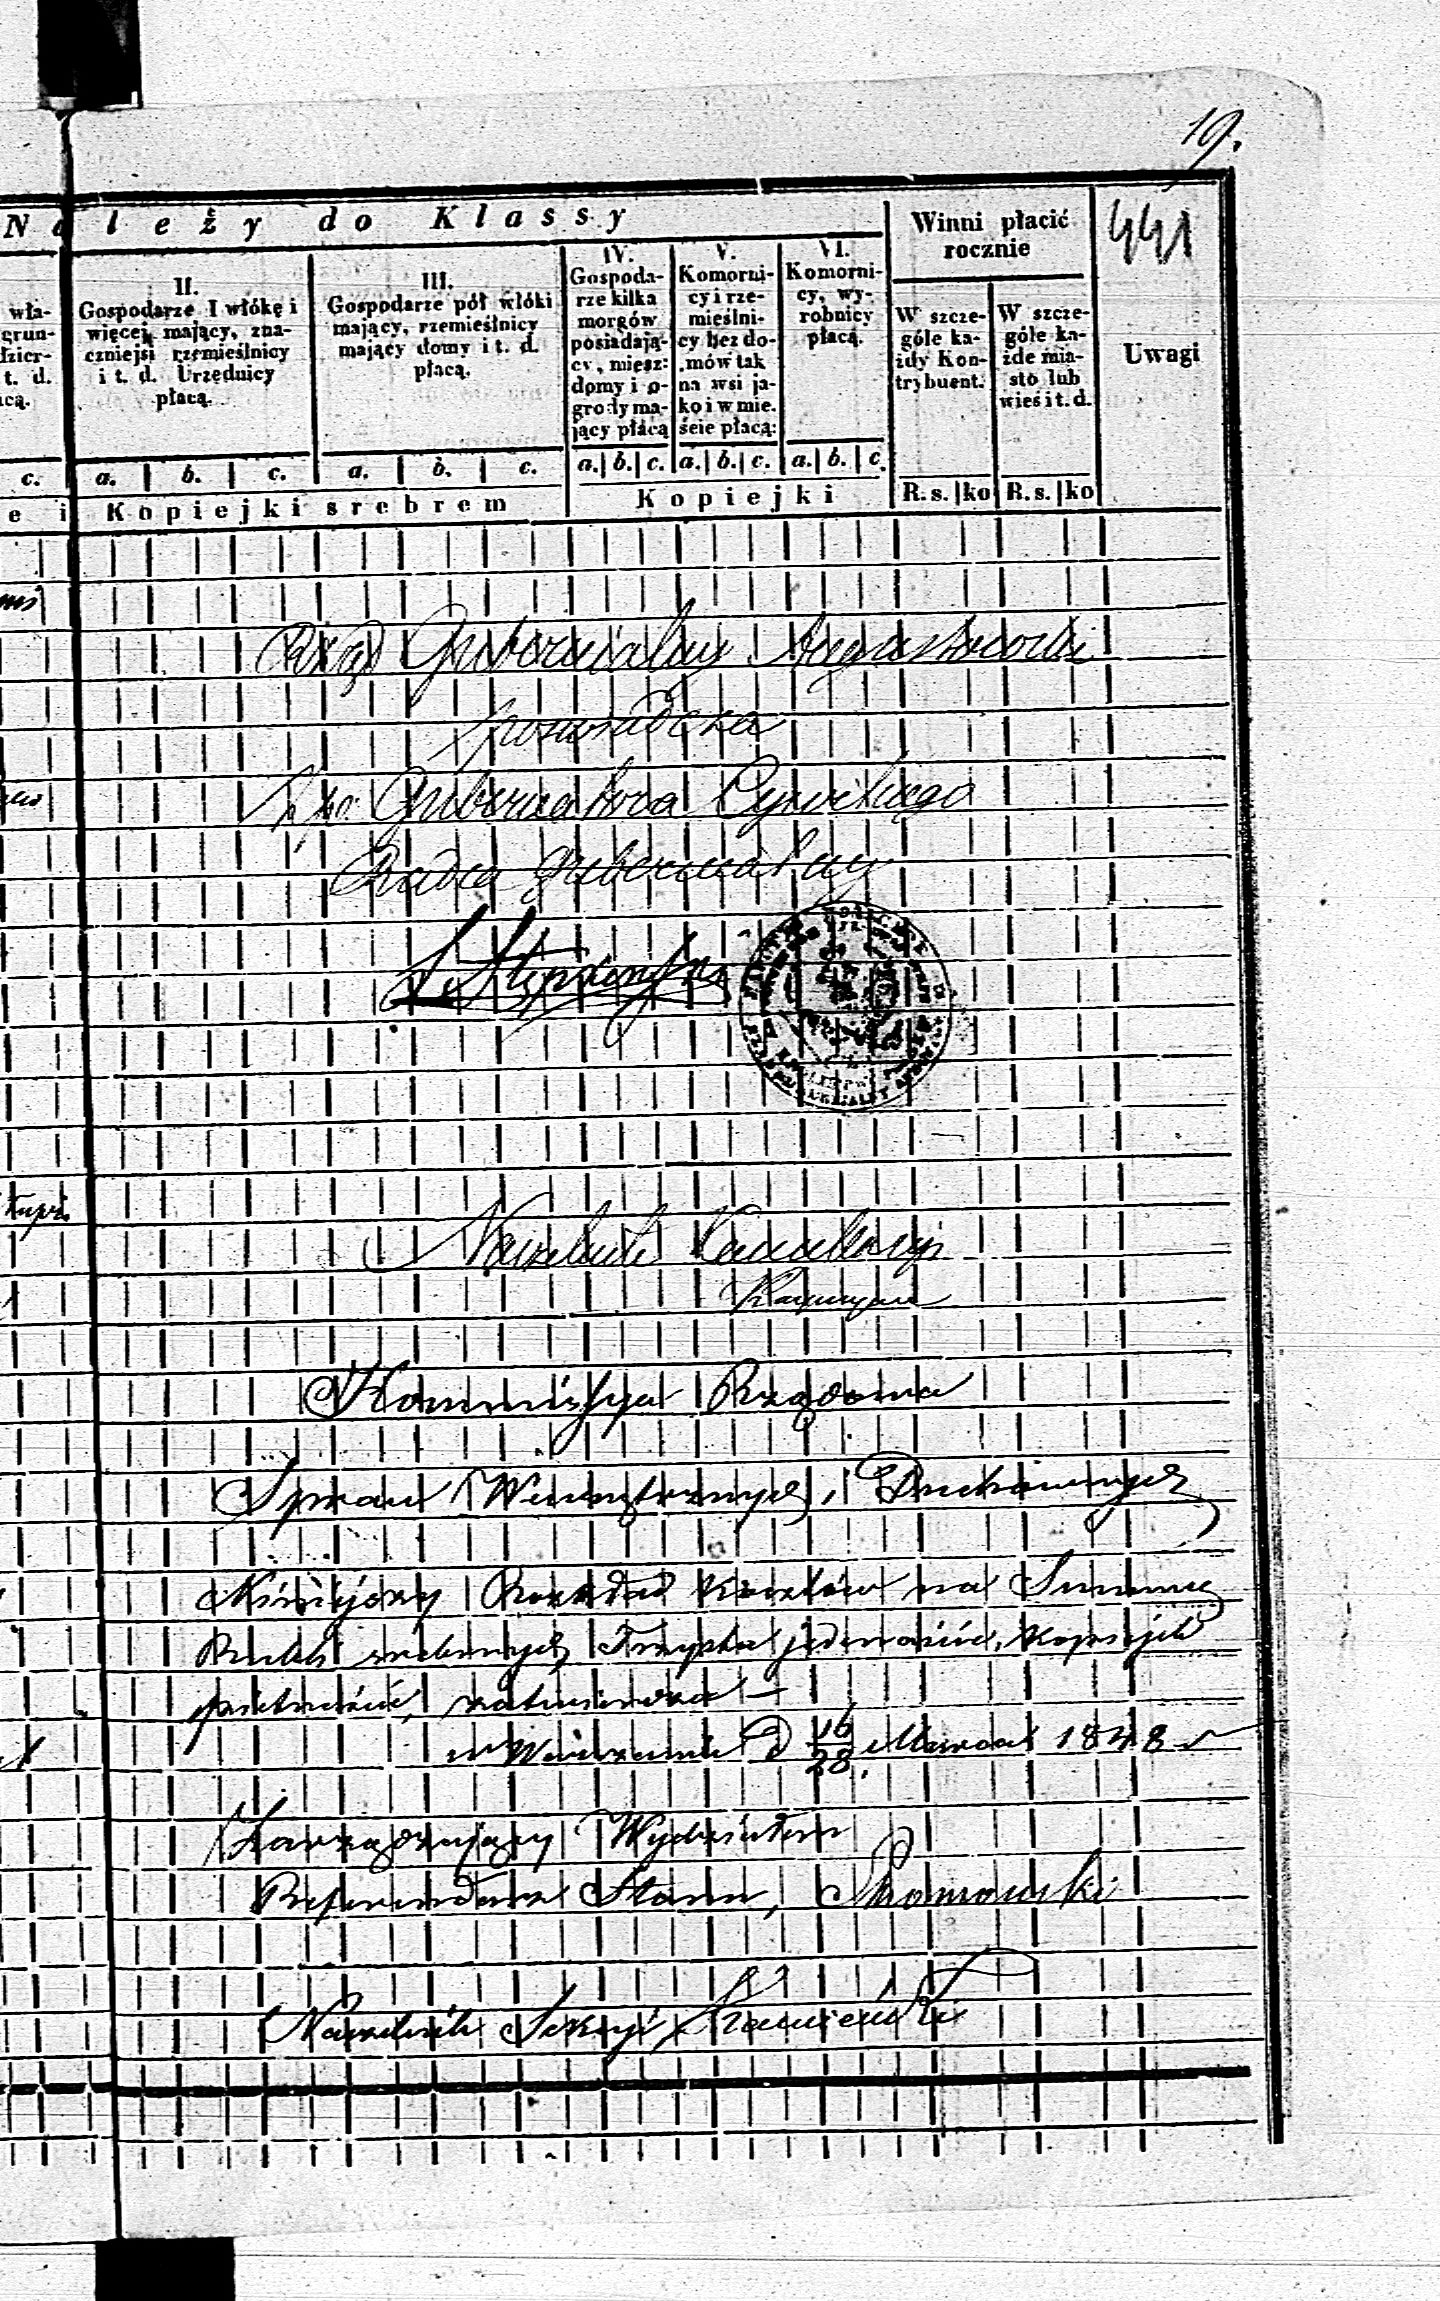 19.
Należy do Klassy
Winni płacić
rocznie
441
wła-
grun-
dzier-
t. d.
II.
Gospodarze I włókę i
więcej mający, zna-
czniejsi rzemieślnicy
i t. d. Urzędnicy
płacą.
III.
Gospodarze pół włóki
mający, rzemieślnicy
mający domy i t. d.
płacą.
IV.
Gospoda-
rze kilka
morgów
posiadają-
cy, miesz:
domy i o-
grody ma-
jący płacą
V.
Komorni-
cy i rze-
mieślni-
cy bez do-
mów tak
na wsi ja-
ko i w mie.
ście płacą:
VI.
Komorni-
cy, wy-
robnicy
płacą.
W szcze-
góle ka-
żdy Kon-
trybuent.
W szcze-
góle ka-
żde mia-
sto lub
wieś i t. d.
Uwagi
c. a. b. c. a. b. c. a. b. c. a. b. c. a. b. c.
e i Kopiejki srebrem Kopiejki R. s. ko R. s. ko
Rząd Gubernialny Augustowski
poświadcza
Gubernatora Cywilnego
Radca Gubernialny
Naczelnik Kancellaryi
Kommissya Rządowa
Spraw Wewnętrznych i Duchownych
Niniejszy Rozkład Kosztów na Summę
Rubli srebrnych Trzysta jedenaście, kopiejek
piętnaście, zatwierdza —
w Warszawie d 16/28 Marca 1848 r
Zarządzający Wydziałem
Referendarz Stanu,
Naczelnik Sekcyi,